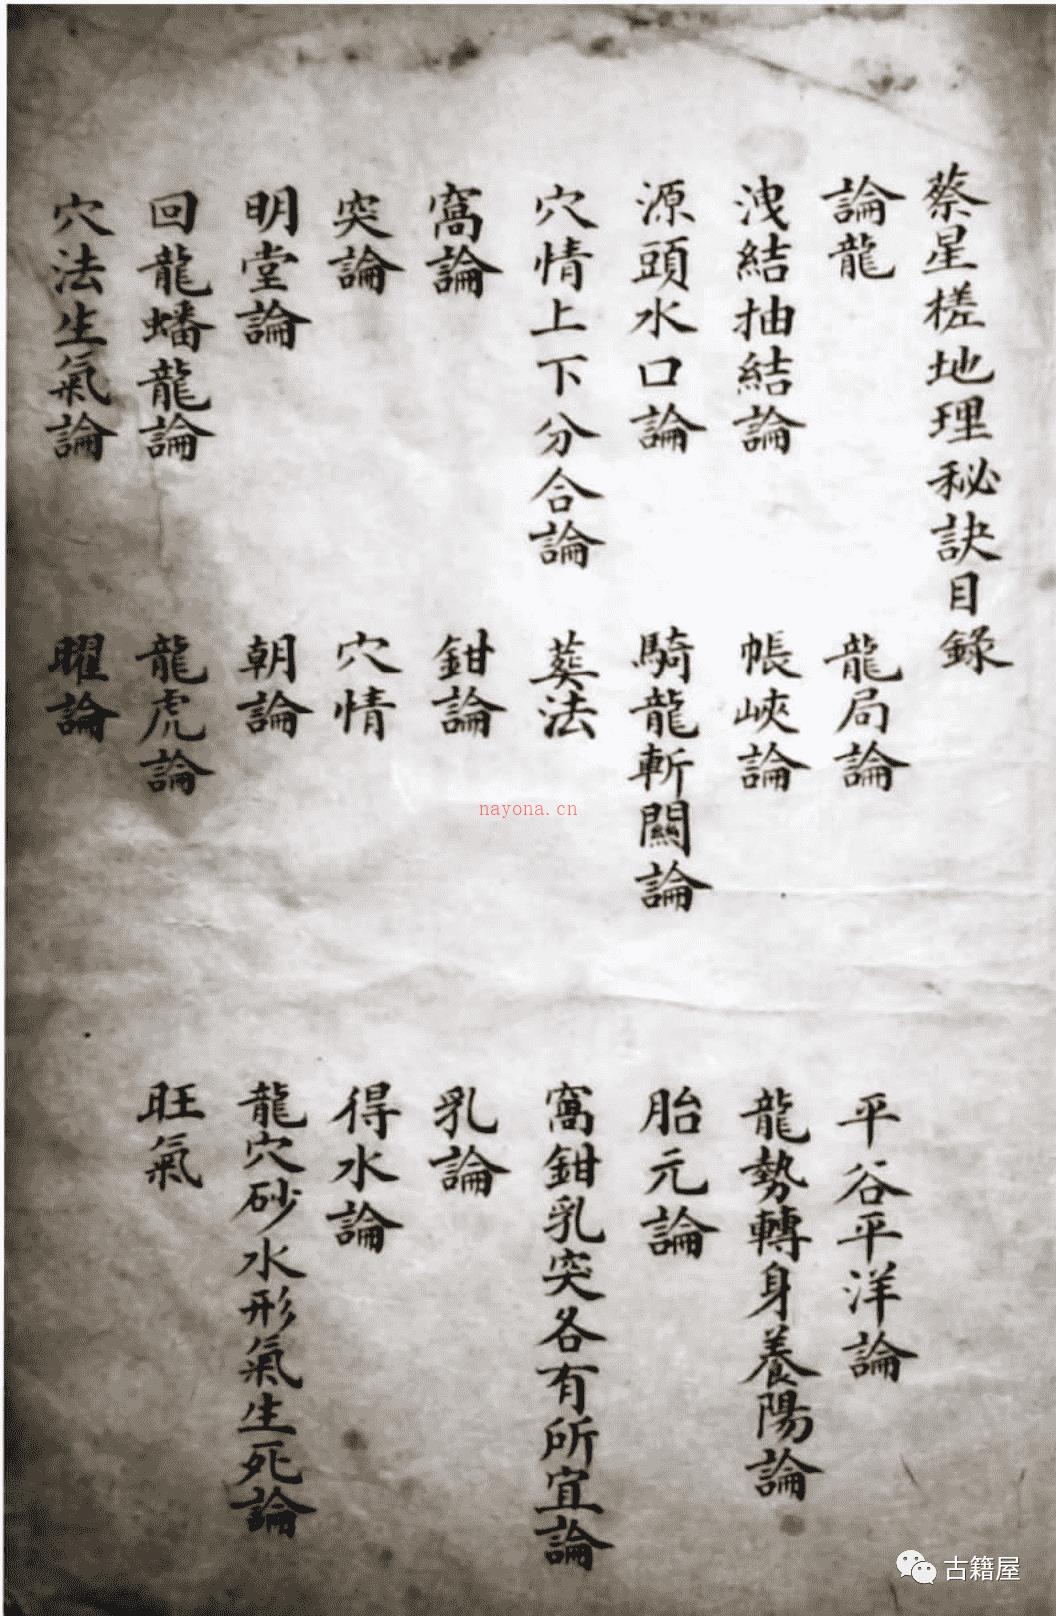 蔡星槎地理秘訣目錄
論龍 龍局論 平谷平洋論
洩結抽結論 帳峽論 龍勢轉身養陽論
源頭水口論 騎龍斬關論 胎元論
穴情上下分合論 葬法 窩鉗乳突各有所宜論
窩論 鉗論 乳論
突論 穴情 得水論
明堂論 朝論 龍穴砂水形氣生死論
回龍蟠龍論 龍虎論 旺氣
穴法生氣論 曜論
nayona.cn
古籍屋